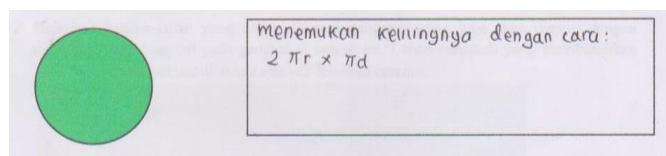 menemukan kelilingnya dengan cara:
2 πr × πd